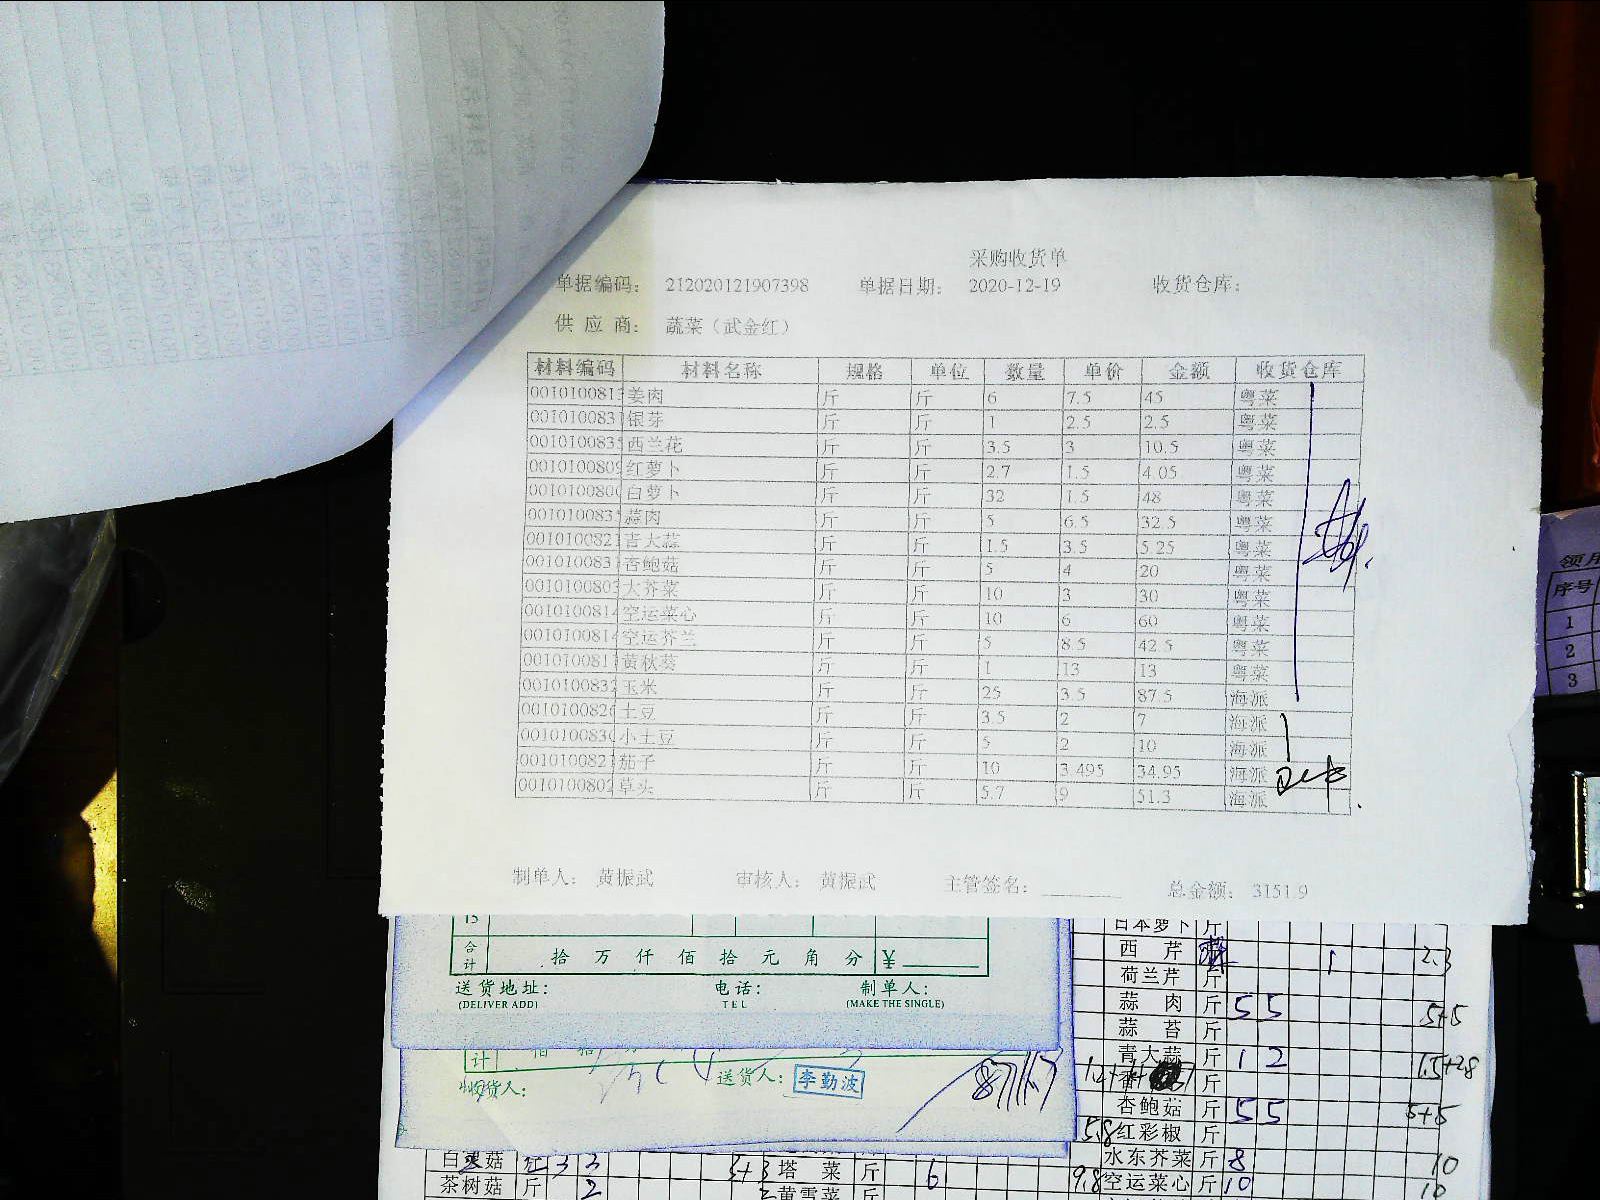 采购收货单
单据编码： 212020121907398 单据日期： 2020-12-19 收货仓库：
供 应 商： 蔬菜（武金红）
材料编码 材料名称 规格 单位 数量 单价 金额 收货仓库
001010081 姜肉 斤 斤 6 7.5 45 粤菜
001010083 银芽 斤 斤 1 2.5 2.5 粤菜
001010083 西兰花 斤 斤 3.5 3 10.5 粤菜
001010080 红萝卜 斤 斤 2.7 1.5 4.05 粤菜
001010080 白萝卜 斤 斤 32 1.5 48 粤菜
001010083 蒜肉 斤 斤 5 6.5 32.5 粤菜
001010082 青大蒜 斤 斤 1.5 3.5 5.25 粤菜
001010083 杏鲍菇 斤 斤 5 4 20 粤菜
001010080 大芥菜 斤 斤 10 3 30 粤菜
001010081 空运菜心 斤 斤 10 6 60 粤菜
001010081 空运芥兰 斤 斤 5 8.5 42.5 粤菜
001010081 黄秋葵 斤 斤 1 13 13 粤菜
001010083 玉米 斤 斤 25 3.5 87.5 海派
001010082 土豆 斤 斤 3.5 2 7 海派
001010083 小土豆 斤 斤 5 2 10 海派
001010082 茄子 斤 斤 10 3.495 34.95 海派
001010080 草头 斤 斤 5.7 9 51.3 海派
制单人： 黄振武 审核人： 黄振武 主管签名： 总金额： 3151.9
领用
序号
1
2
3
15
合计 拾 万 仟 佰 拾 元 角 分 ￥
送货地址： 电话： 制单人：
(DELIVER ADD) TEL (MAKE THE SINGLE)
计
收货人： 送货人： 李勤波
日本萝卜 斤
西 芹 1 2.3
荷兰芹 斤
蒜 肉 斤 5 5 5+5
蒜 苔 斤
青大蒜 斤 1 2 1.5+2.8
斤
杏鲍菇 斤 5 5 5+5
5.8 红彩椒 斤
水东芥菜 斤 8 10
空运菜心 斤 10 10
白灵菇 3 3 3+3 塔 菜 斤 6 9.8
茶树菇 斤 2 黄雪菜 斤